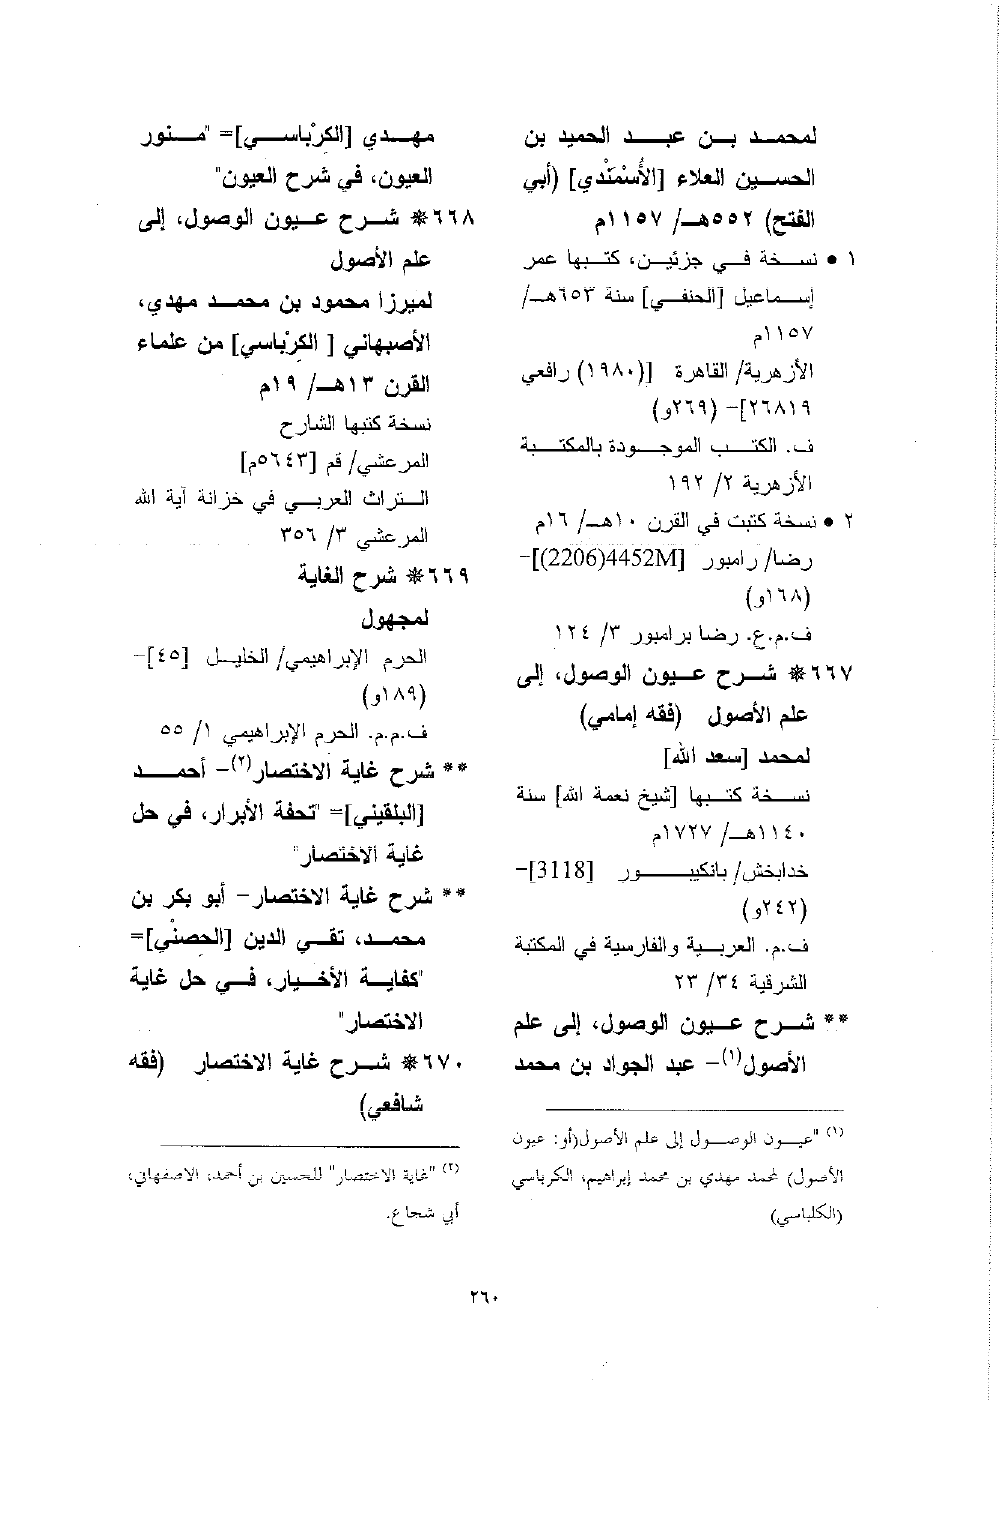 لمحمد بن عبد الحميد بن
الحسين العلاء [الأُسْمَنْدي] (أبي
الفتح) ٥٥٢هـ/ ١١٥٧م
١ • نسخة في جزئين، كتبها عمر
إسماعيل [الحنفي] سنة ٦٥٣هـ/
١١٥٧م
الأزهرية/ القاهرة [(١٩٨٠) رافعي
٢٦٨١٩]- (٢٦٩و)
ف. الكتب الموجودة بالمكتبة
الأزهرية ٢/ ١٩٢
٢ • نسخة كتبت في القرن ١٠هـ/ ١٦م
رضا/ رامبور [4452M(2206)]-
(١٦٨و)
ف.م.ع. رضا برامبور ٣/ ١٢٤
٦٦٧* شرح عيون الوصول، إلى
علم الأصول (فقه إمامي)
لمحمد [سعد الله]
نسخة كتبها [شيخ نعمة الله] سنة
١١٤٠هـ/ ١٧٢٧م
خدابخش/ بانكيبور [3118]-
(٢٤٢و)
ف.م. العربية والفارسية في المكتبة
الشرقية ٣٤/ ٢٣
** شرح عيون الوصول، إلى علم
الأصول(١)- عبد الجواد بن محمد
(١) "عيون الوصول إلى علم الأصول(أو: عيون
الأصول) لمحمد مهدي بن محمد إبراهيم، الكرباسي
(الكلباسي)
مهدي [الكرْباسي]= "منور
العيون، في شرح العيون"
٦٦٨* شرح عيون الوصول، إلى
علم الأصول
لميرزا محمود بن محمد مهدي،
الأصبهاني [ الكرْباسي] من علماء
القرن ١٣هـ/ ١٩م
نسخة كتبها الشارح
المرعشي/ قم [٥٦٤٣م]
التراث العربي في خزانة آية الله
المرعشي ٣/ ٣٥٦
٦٦٩* شرح الغاية
لمجهول
الحرم الإبراهيمي/ الخليل [٤٥]-
(١٨٩و)
ف.م.م. الحرم الإبراهيمي ١/ ٥٥
** شرح غاية الاختصار(٢)- أحمد
[البلقيني]= "تحفة الأبرار، في حل
غاية الاختصار"
** شرح غاية الاختصار- أبو بكر بن
محمد، تقي الدين [الحصْني]=
"كفاية الأخيار، في حل غاية
الاختصار"
٦٧٠* شرح غاية الاختصار (فقه
شافعي)
(٢) "غاية الاختصار" للحسين بن أحمد، الاصفهاني،
أبي شجاع.
٢٦٠